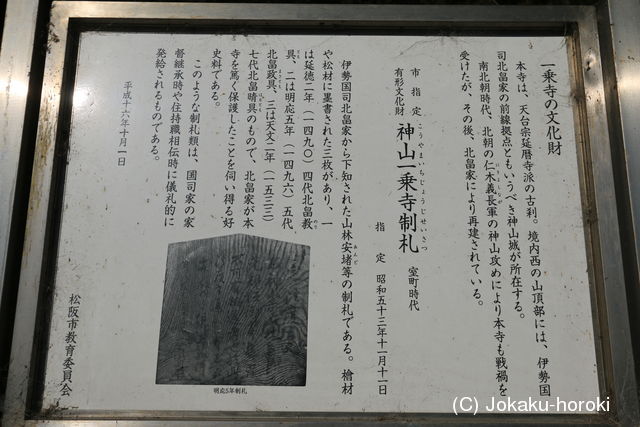 一乗寺の文化財
本寺は、天台宗延暦寺派の古刹。境内西の山頂部には、伊勢国
司北畠家の前線拠点ともいうべき神山城が所在する。
南北朝時代、北朝の仁木義長軍の神山攻めにより本寺も戦禍を
受けたが、その後、北畠家により再建されている。
市指定
有形文化財
神山一乗寺制札
こうやまいちじょうじせいさつ
室町時代
指定 昭和五十三年十一月十一日
伊勢国司北畠家から下知された山林安堵等の制札である。檜材
や松材に墨書された三枚があり、一
は延徳二年（一四九〇）四代北畠教
具、二は明応五年（一四九六）五代
北畠政具、三は天文二年（一五三三）
七代北畠晴具のもので、北畠家が本
寺を篤く保護したことを伺い得る好
史料である。
このような制札類は、国司家の家
督継承時や住持職相伝時に儀礼的に
発給されるものである。
平成十六年十月一日
松阪市教育委員会
明応5年制札
(C) Jokaku-horoki